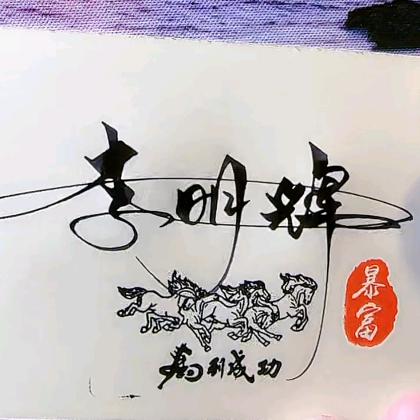 李明辉
暴富
马到成功